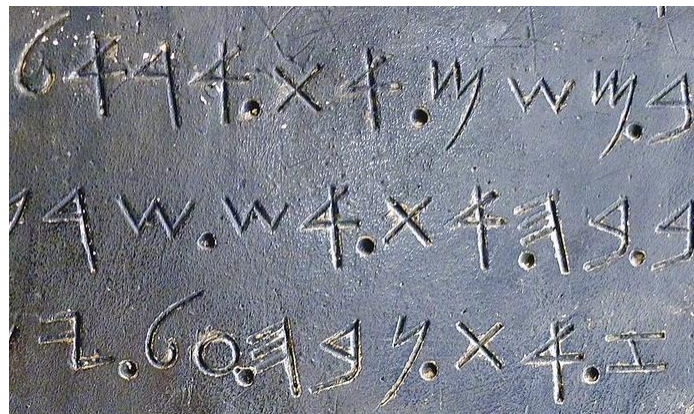 𐤁.𐤌𐤔𐤌.𐤀𐤕.𐤀𐤓𐤀𐤋
𐤁.𐤁𐤄.𐤀𐤕.𐤀𐤔.𐤔𐤓𐤍
𐤆.𐤀𐤕.𐤍𐤁𐤄.𐤏𐤋.𐤉